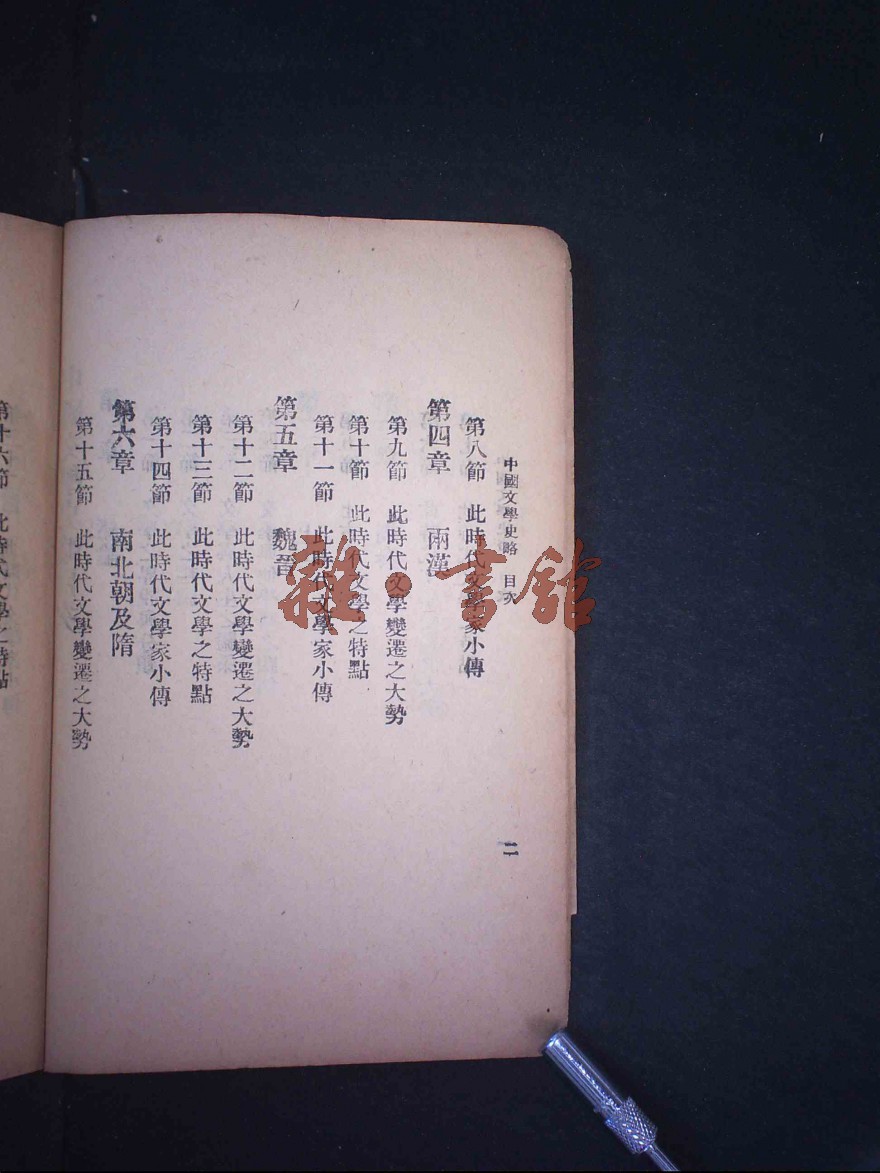 中國文學史略　目次
二
第八節　此時代文學家小傳
第四章　兩漢
第九節　此時代文學變遷之大勢
第十節　此時代文學之特點
第十一節　此時代文學家小傳
第五章　魏晉
第十二節　此時代文學變遷之大勢
第十三節　此時代文學之特點
第十四節　此時代文學家小傳
第六章　南北朝及隋
第十五節　此時代文學變遷之大勢
第十六節　此時代文學之特點
雜·書館